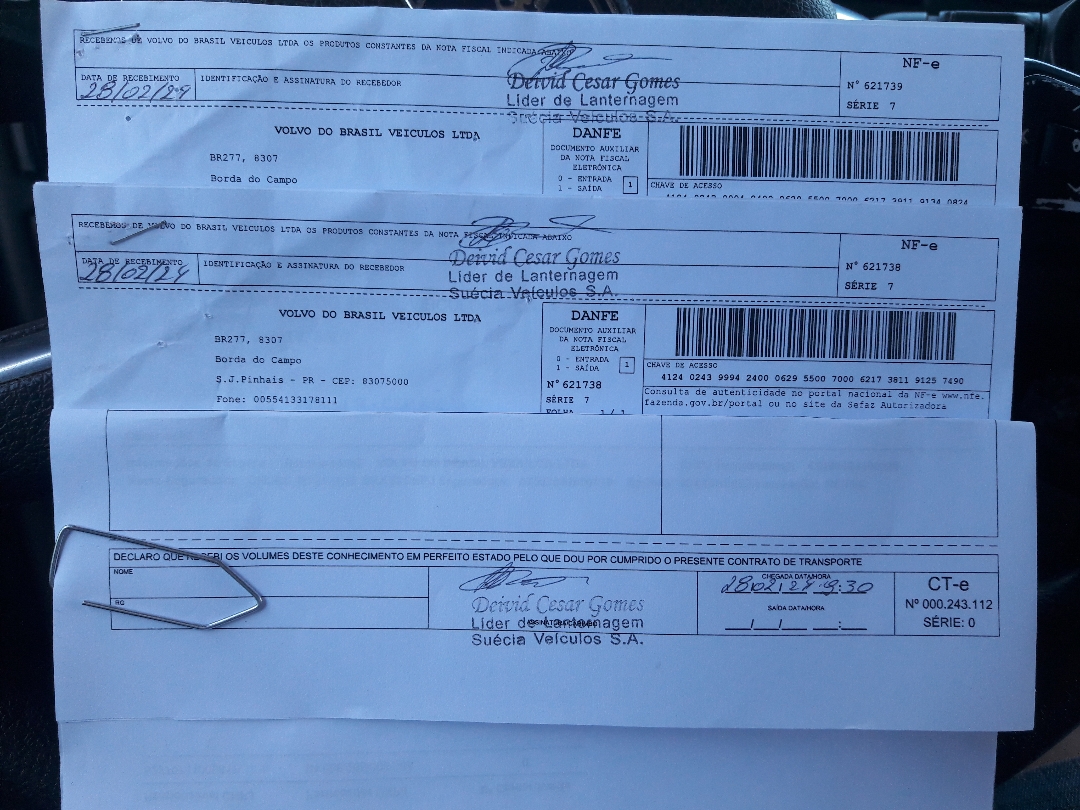 RECEBEMOS DE VOLVO DO BRASIL VEICULOS LTDA OS PRODUTOS CONSTANTES DA NOTA FISCAL INDICADA ABAIXO
NF-e
DATA DE RECEBIMENTO
IDENTIFICAÇÃO E ASSINATURA DO RECEBEDOR
28/02/24
Deivid Cesar Gomes
Líder de Lanternagem
Suécia Veículos S.A.
Nº 621739
SÉRIE 7
VOLVO DO BRASIL VEICULOS LTDA
BR277, 8307
Borda do Campo
DANFE
DOCUMENTO AUXILIAR
DA NOTA FISCAL
ELETRÔNICA
0 - ENTRADA
1 - SAÍDA
1
CHAVE DE ACESSO
RECEBEMOS DE VOLVO DO BRASIL VEICULOS LTDA OS PRODUTOS CONSTANTES DA NOTA FISCAL INDICADA ABAIXO
NF-e
DATA DE RECEBIMENTO
IDENTIFICAÇÃO E ASSINATURA DO RECEBEDOR
28/02/24
Deivid Cesar Gomes
Líder de Lanternagem
Suécia Veículos S.A.
Nº 621738
SÉRIE 7
VOLVO DO BRASIL VEICULOS LTDA
BR277, 8307
Borda do Campo
S.J.Pinhais - PR - CEP: 83075000
Fone: 00554133178111
DANFE
DOCUMENTO AUXILIAR
DA NOTA FISCAL
ELETRÔNICA
0 - ENTRADA
1 - SAÍDA
1
Nº 621738
SÉRIE 7
FOLHA 1/1
CHAVE DE ACESSO
4124 0243 9994 2400 0629 5500 7000 6217 3811 9125 7490
Consulta de autenticidade no portal nacional da NF-e www.nfe.
fazenda.gov.br/portal ou no site da Sefaz Autorizadora
DECLARO QUE RECEBI OS VOLUMES DESTE CONHECIMENTO EM PERFEITO ESTADO PELO QUE DOU POR CUMPRIDO O PRESENTE CONTRATO DE TRANSPORTE
NOME
RG
Deivid Cesar Gomes
Líder de Lanternagem
Suécia Veículos S.A.
CHEGADA DATA/HORA
28/02/24
SAÍDA DATA/HORA
__/__/__ __:__
CT-e
Nº 000.243.112
SÉRIE: 0